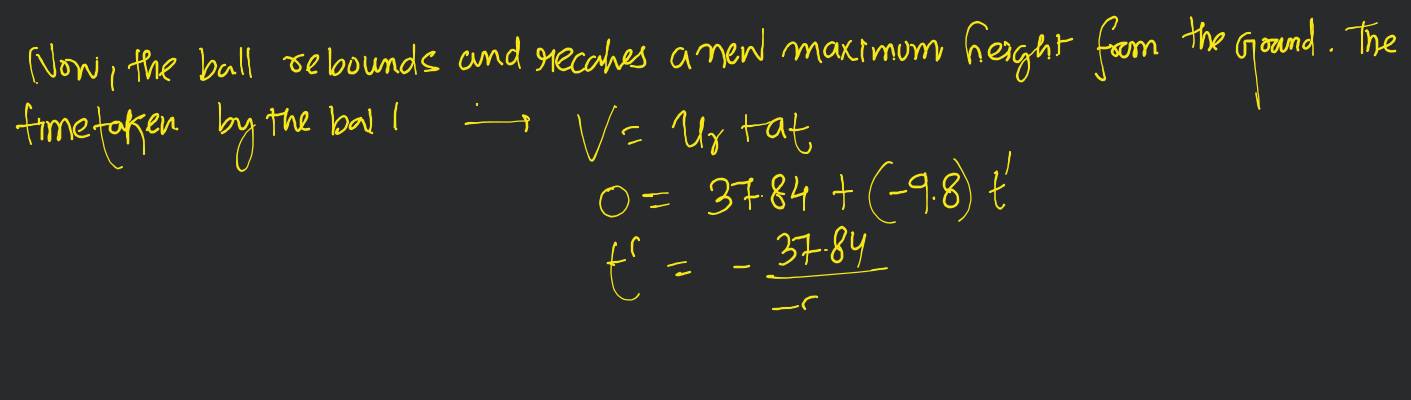 Now, the ball rebounds and recahes a new maximum height from the ground. The
time taken by the ball → V = ur + at
0 = 37.84 + (-9.8) t'
t' = - 37.84 / -